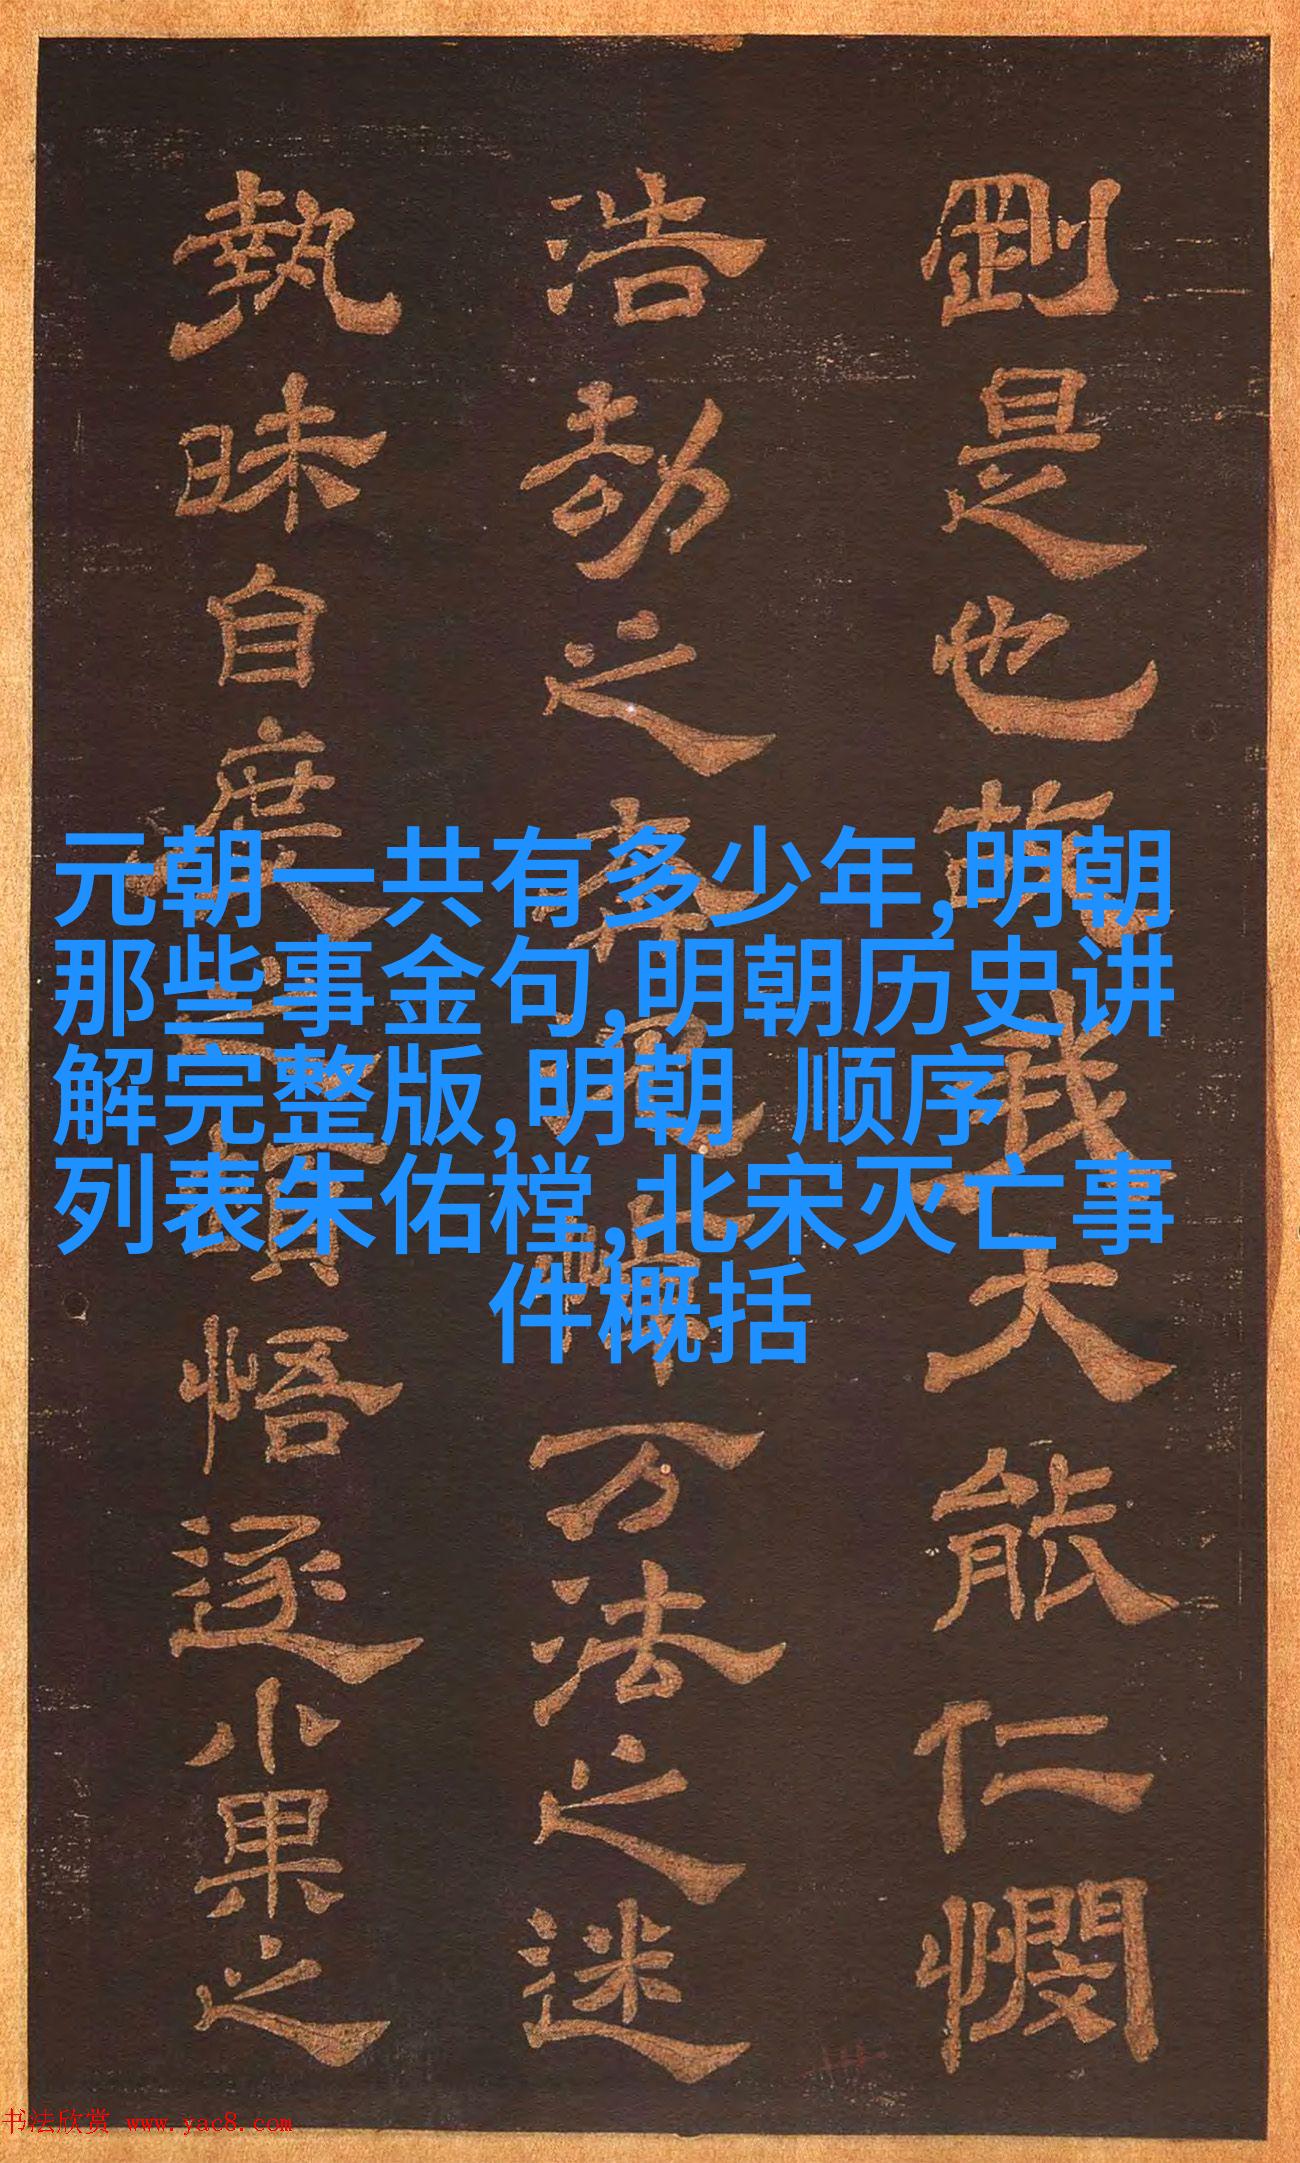 剛是也故我大能仁憫
浩劫之万法之迷
執昧自度悟逐小果之
元朝一共有多少年,明朝
那些事金句,明朝历史讲
解完整版,明朝 顺序
列表朱佑樘,北宋灭亡事
件概括
书法欣赏 www.yac8.com